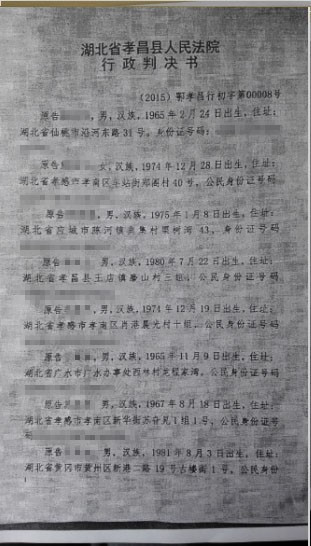 湖北省孝昌县人民法院
行政判决书
(2015) 鄂孝昌行初字第00008号
原告 ，男，汉族，1965年2月24日出生，住址：
湖北省仙桃市沔河东路31号，身份证号码：
女，汉族，1974年12月28日出生，住址：
湖北省孝感市孝南区车站街郑阁村40号，公民身份证号码
原告 ，男，汉族，1975年1月8日出生，住址：
湖北省应城市陈河镇 集村栗树湾43，身份证号码
原告 ，男，汉族，1980年7月22日出生，住址：
湖北省孝昌县王店镇 山村三组，公民身份证号码
原告 ，男，汉族，1974年12月19日出生，住址：
湖北省孝感市孝南区肖港晨光村十组，公民身份证号码
原告 ，男，汉族，1965年11月9日出生，住址：
湖北省广水市广水办事处西林村龙程家湾，公民身份证号码
原告 ，男，汉族，1967年8月18日出生，住址：
湖北省孝感市孝南区新华街 1组1号，公民身份证号
原告 男，汉族，1991年8月3日出生，住址：
湖北省黄冈市黄州区新港二路19号古楼街1号，公民身份